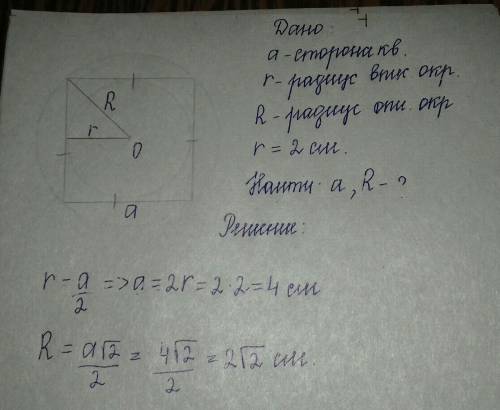 Дано:
a - сторона кв.
r - радиус впис. окр.
R - радиус опи. окр
r = 2 см.
Найти: a, R - ?
Решение:
R
r
O
a
r - a/2 => a = 2r = 2·2 = 4 см
R = a√2/2 = 4√2/2 = 2√2 см.